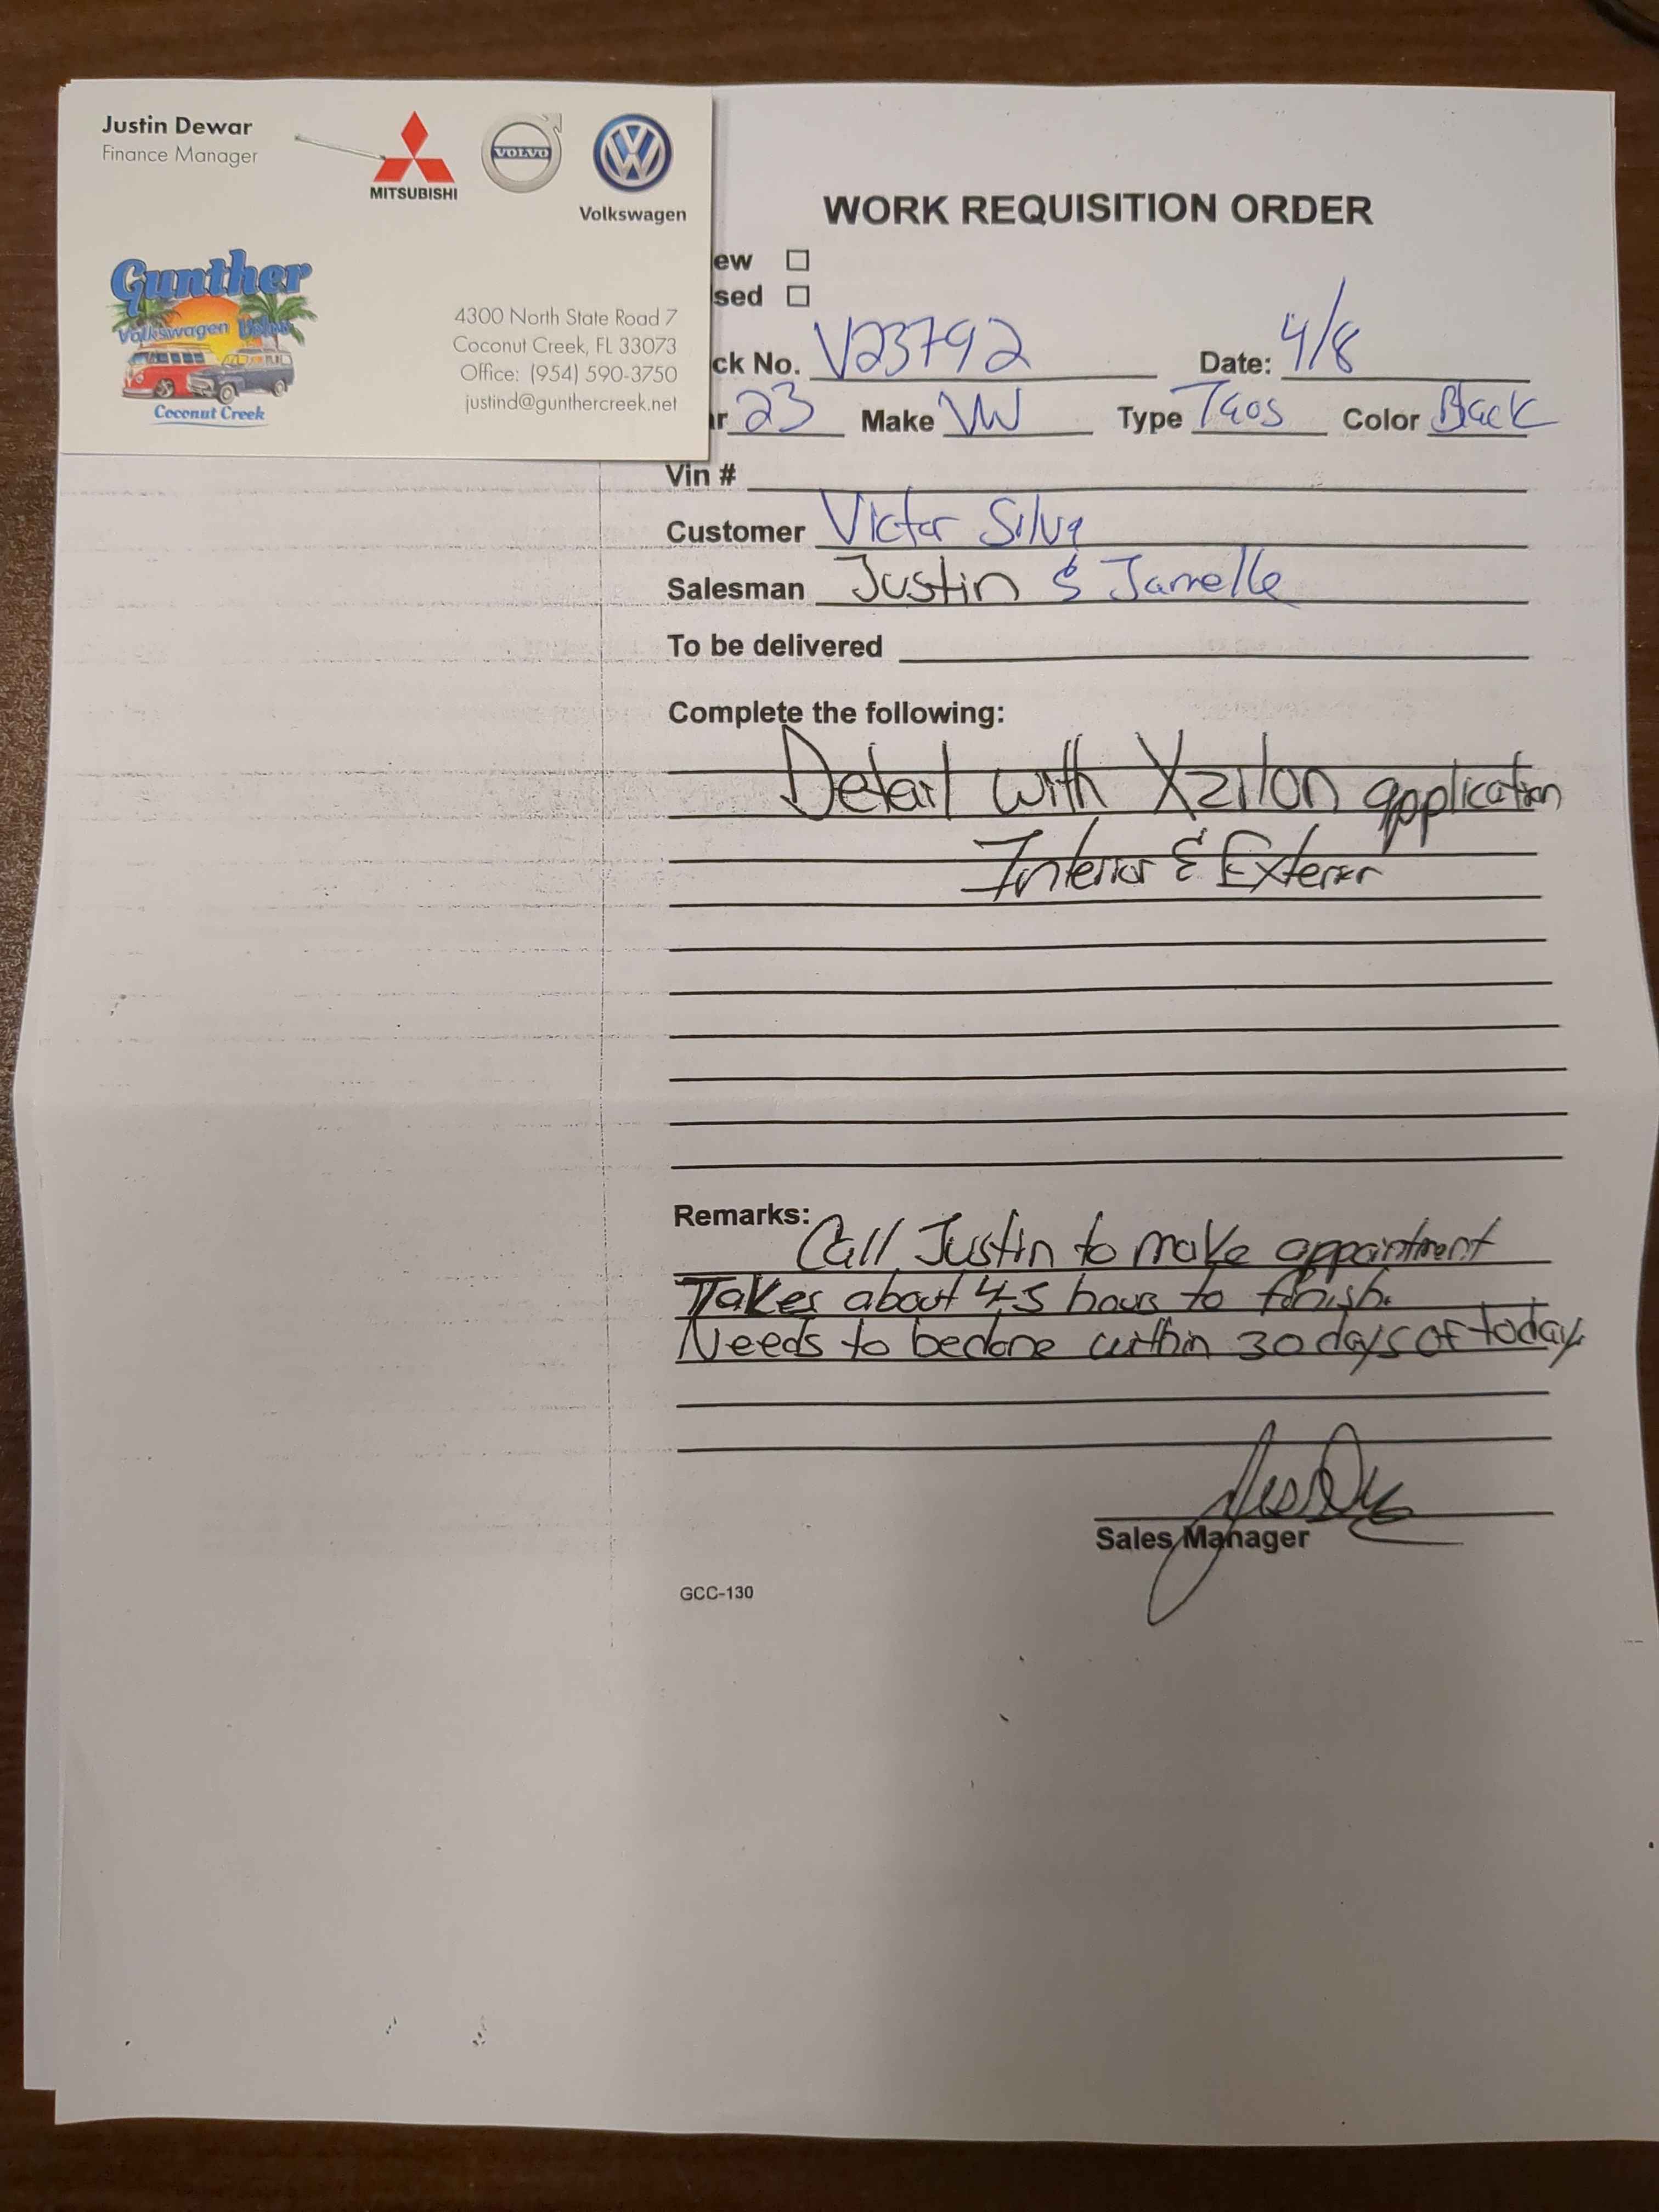 Justin Dewar
Finance Manager
MITSUBISHI
VOLVO
Volkswagen
Gunther
Volkswagen Volvo
Coconut Creek
4300 North State Road 7
Coconut Creek, FL 33073
Office: (954) 590-3750
justind@gunthercreek.net
WORK REQUISITION ORDER
ew
sed
ck No. V23792 Date: 4/8
r 23 Make VW Type Taos Color Black
Vin #
Customer Victor Silva
Salesman Justin & Jarrelle
To be delivered
Complete the following:
Detail with Xzilon application
Interior & Exterior
Remarks: Call Justin to make appointment
Takes about 4-5 hours to finish.
Needs to be done within 30 days of today
Sales Manager
GCC-130